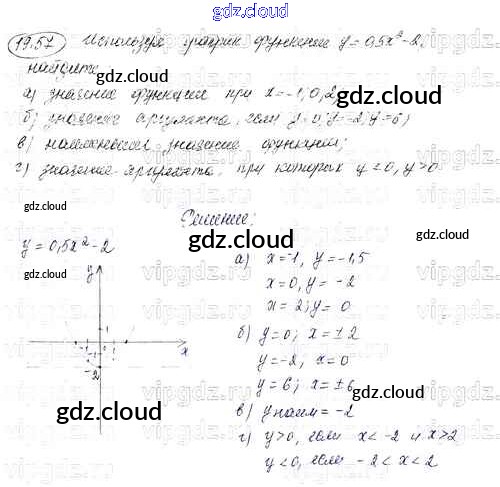 gdz.cloud
19.57 Используя график функции y = 0,5x² - 2,
найдите
gdz.cloud gdz.cloud
а) значение функции при x = -1, 0, 2;
б) значение аргумента, если y = 0; y = -2; y = 6;
в) наименьшее значение функции;
г) значение аргумента, при которых y < 0, y > 0.
gdz.cloud
Решение:
gdz.cloud
y = 0,5x² - 2
а) x = -1, y = -1,5
gdz.cloud gdz.cloud
x = 0, y = -2
x = 2; y = 0
y
1
б) y = 0; x = ± 2
-1 0 1 x
y = -2, x = 0
-2
y = 6; x = ± 6
gdz.cloud gdz.cloud
в) y наим = -2
г) y > 0, если x < -2 и x > 2
y < 0, если -2 < x < 2
gdz.cloud